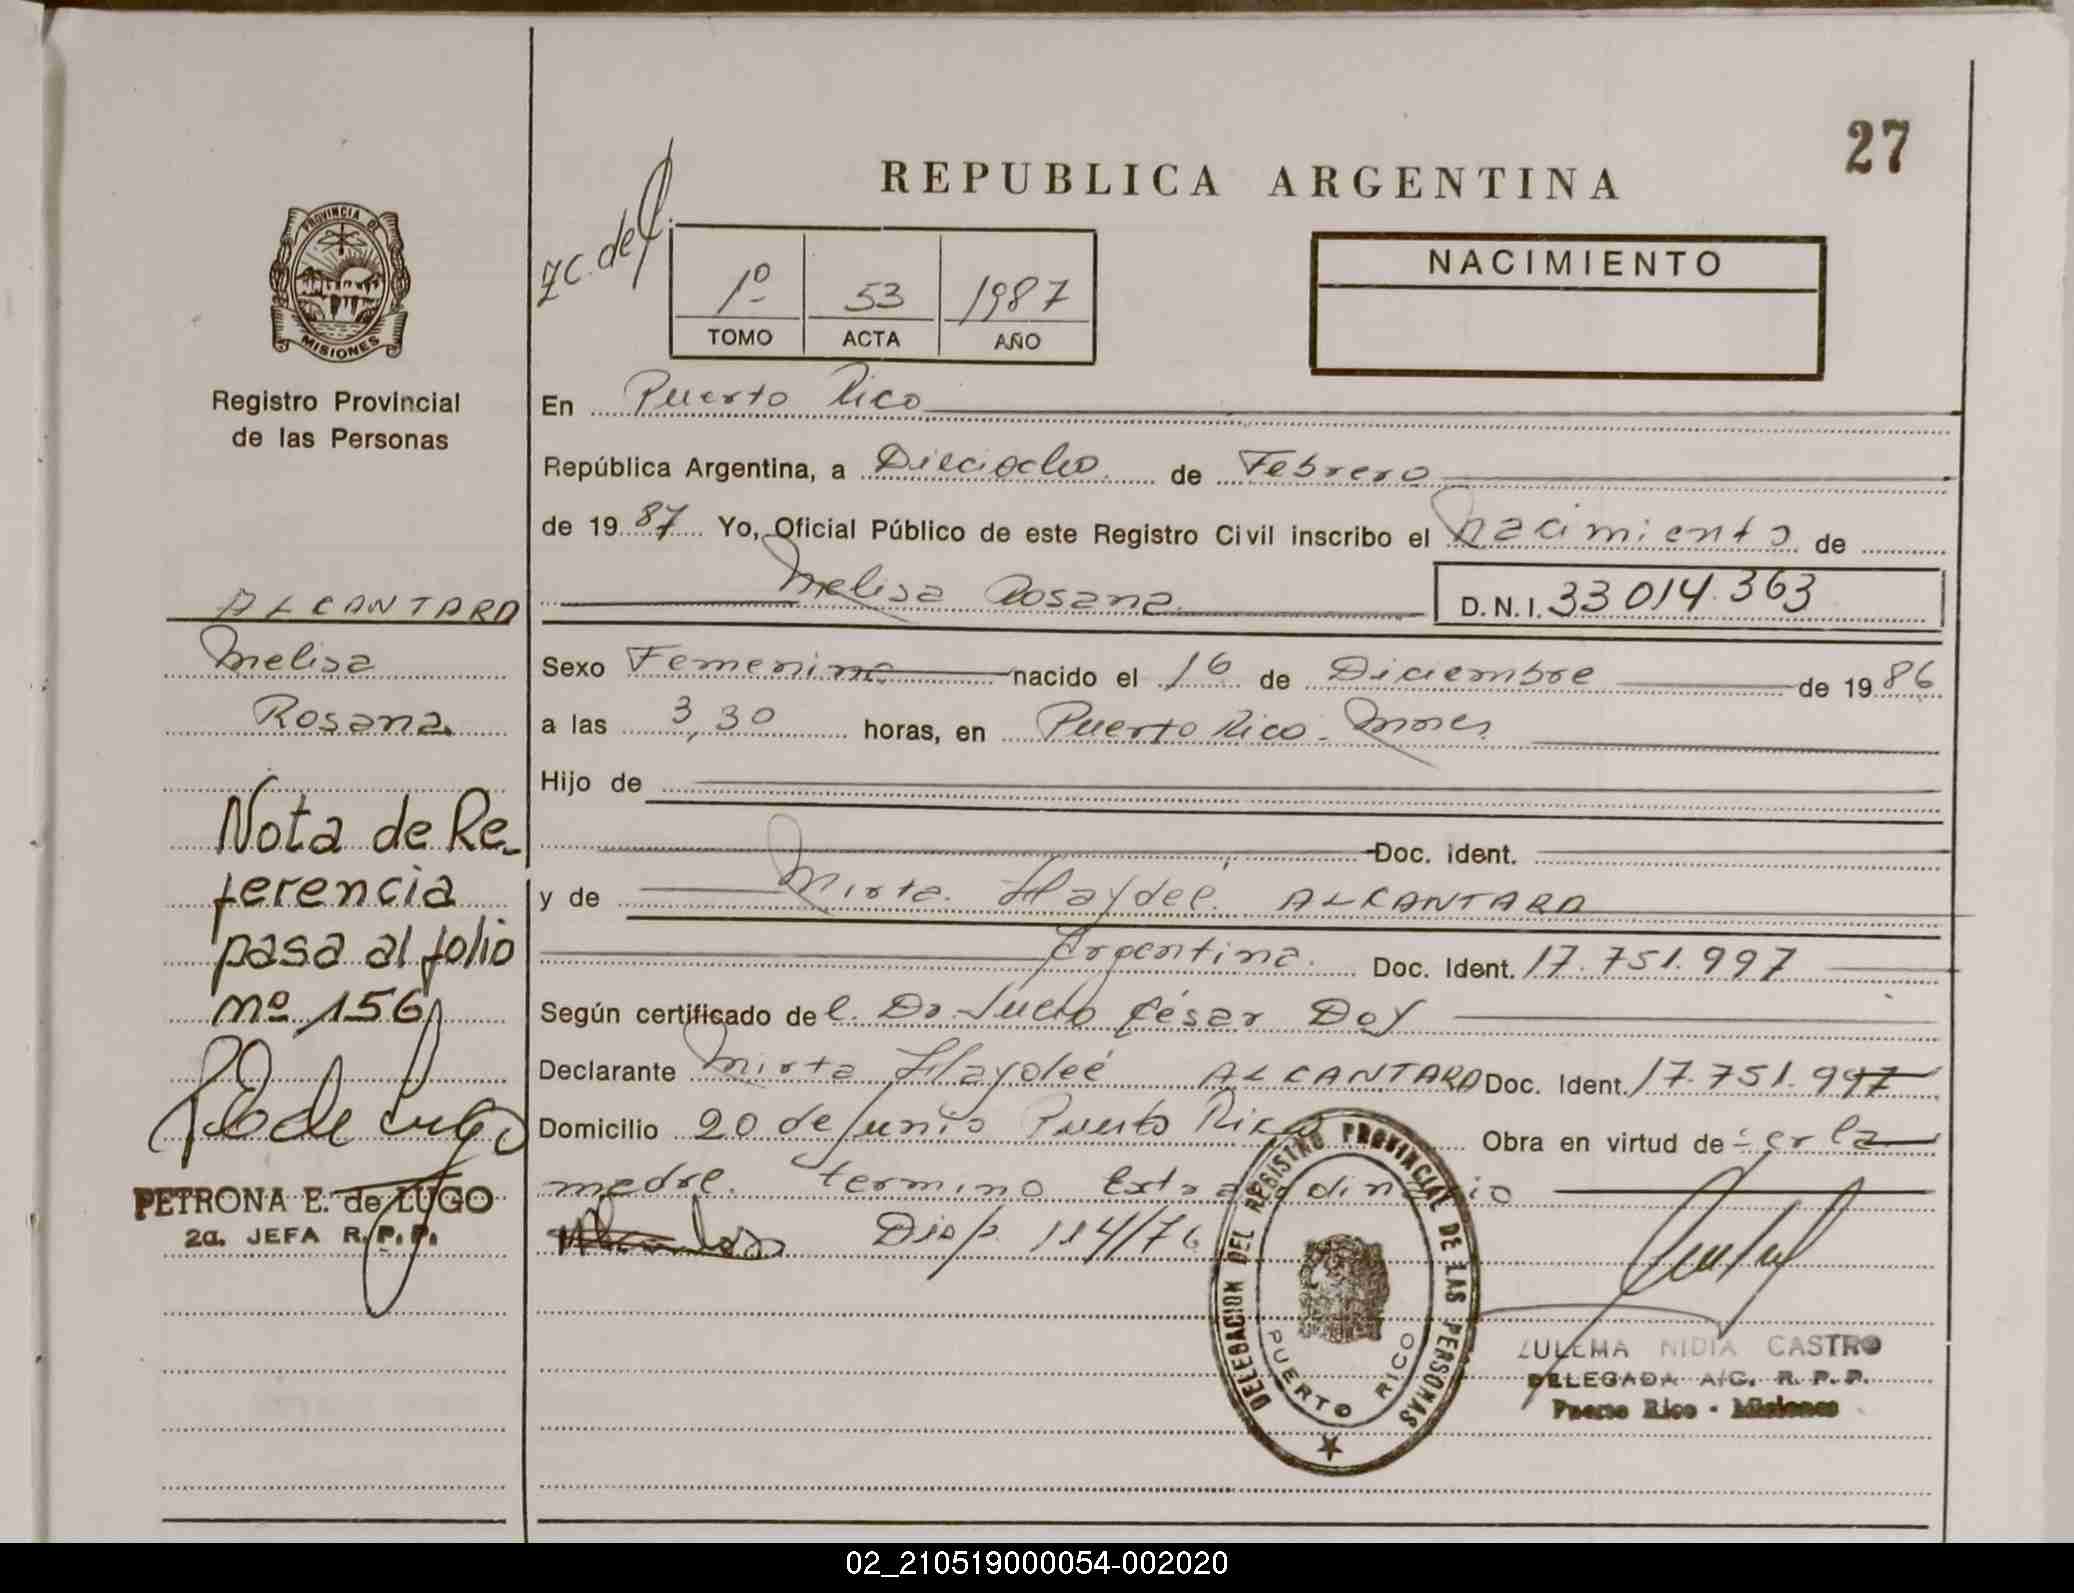 27
REPUBLICA ARGENTINA
PROVINCIA DE
MISIONES
Registro Provincial
de las Personas
1º 53 1987
TOMO ACTA AÑO
NACIMIENTO
En Puerto Rico
República Argentina, a Dieciocho de Febrero
de 1987 Yo, Oficial Público de este Registro Civil inscribo el Nacimiento de
Melisa Rosana D.N.I. 33 014.363
ALCANTARA
Melisa
Rosana
Sexo Femenino nacido el 16 de Diciembre de 1986
a las 3,30 horas, en Puerto Rico - Mnes
Hijo de
Doc. ident.
y de Mirta Haydeé ALCANTARA
Argentina. Doc. Ident. 17.751.997
Según certificado del Dr César Doy
Declarante Mirta Haydeé ALCANTARA Doc. Ident. 17.751.997
Domicilio 20 de Junio Puerto Rico Obra en virtud de ser la
madre. termino Extraordinario
Disp. 114/76
Nota de Re-
ferencia
pasa al folio
nº 156
PETRONA E. de LUGO
2a. JEFA R.P.P.
DELEGACION DEL REGISTRO PROVINCIAL DE LAS PERSONAS
PUERTO RICO
ZULEMA NIDIA CASTRO
DELEGADA A/C. R. P. P.
Puerto Rico - Misiones
02_210519000054-002020